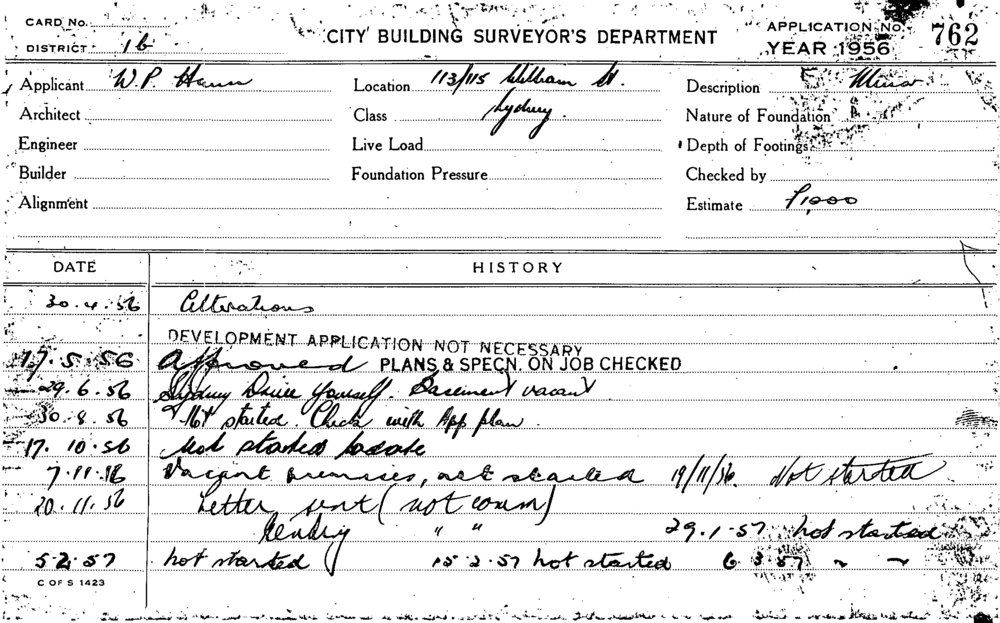 CARD No.
DISTRICT 1b
CITY BUILDING SURVEYOR'S DEPARTMENT
APPLICATION No. 762
YEAR 1956
Applicant W.P.
Location 113/115 William St.
Description Minor
Architect
Class Sydney
Nature of Foundation
Engineer
Live Load
Depth of Footings
Builder
Foundation Pressure
Checked by
Alignment
Estimate £1,000
DATE HISTORY
30.4.56 Alterations
DEVELOPMENT APPLICATION NOT NECESSARY
17.5.56 Approved PLANS & SPECN. ON JOB CHECKED
29.6.56 Sydney Drive Yourself. Basement vacant
30.8.56 Not started. Check with App plan
17.10.56 Not started to date
7.11.56 Vacant premises, not started 19/11/56. Not started
20.11.56 Letter sent (not comm)
" " 29.1.57 not started
5.2.57 not started 15.2.57 not started 6.3.57 ~ ~
C OF S 1423